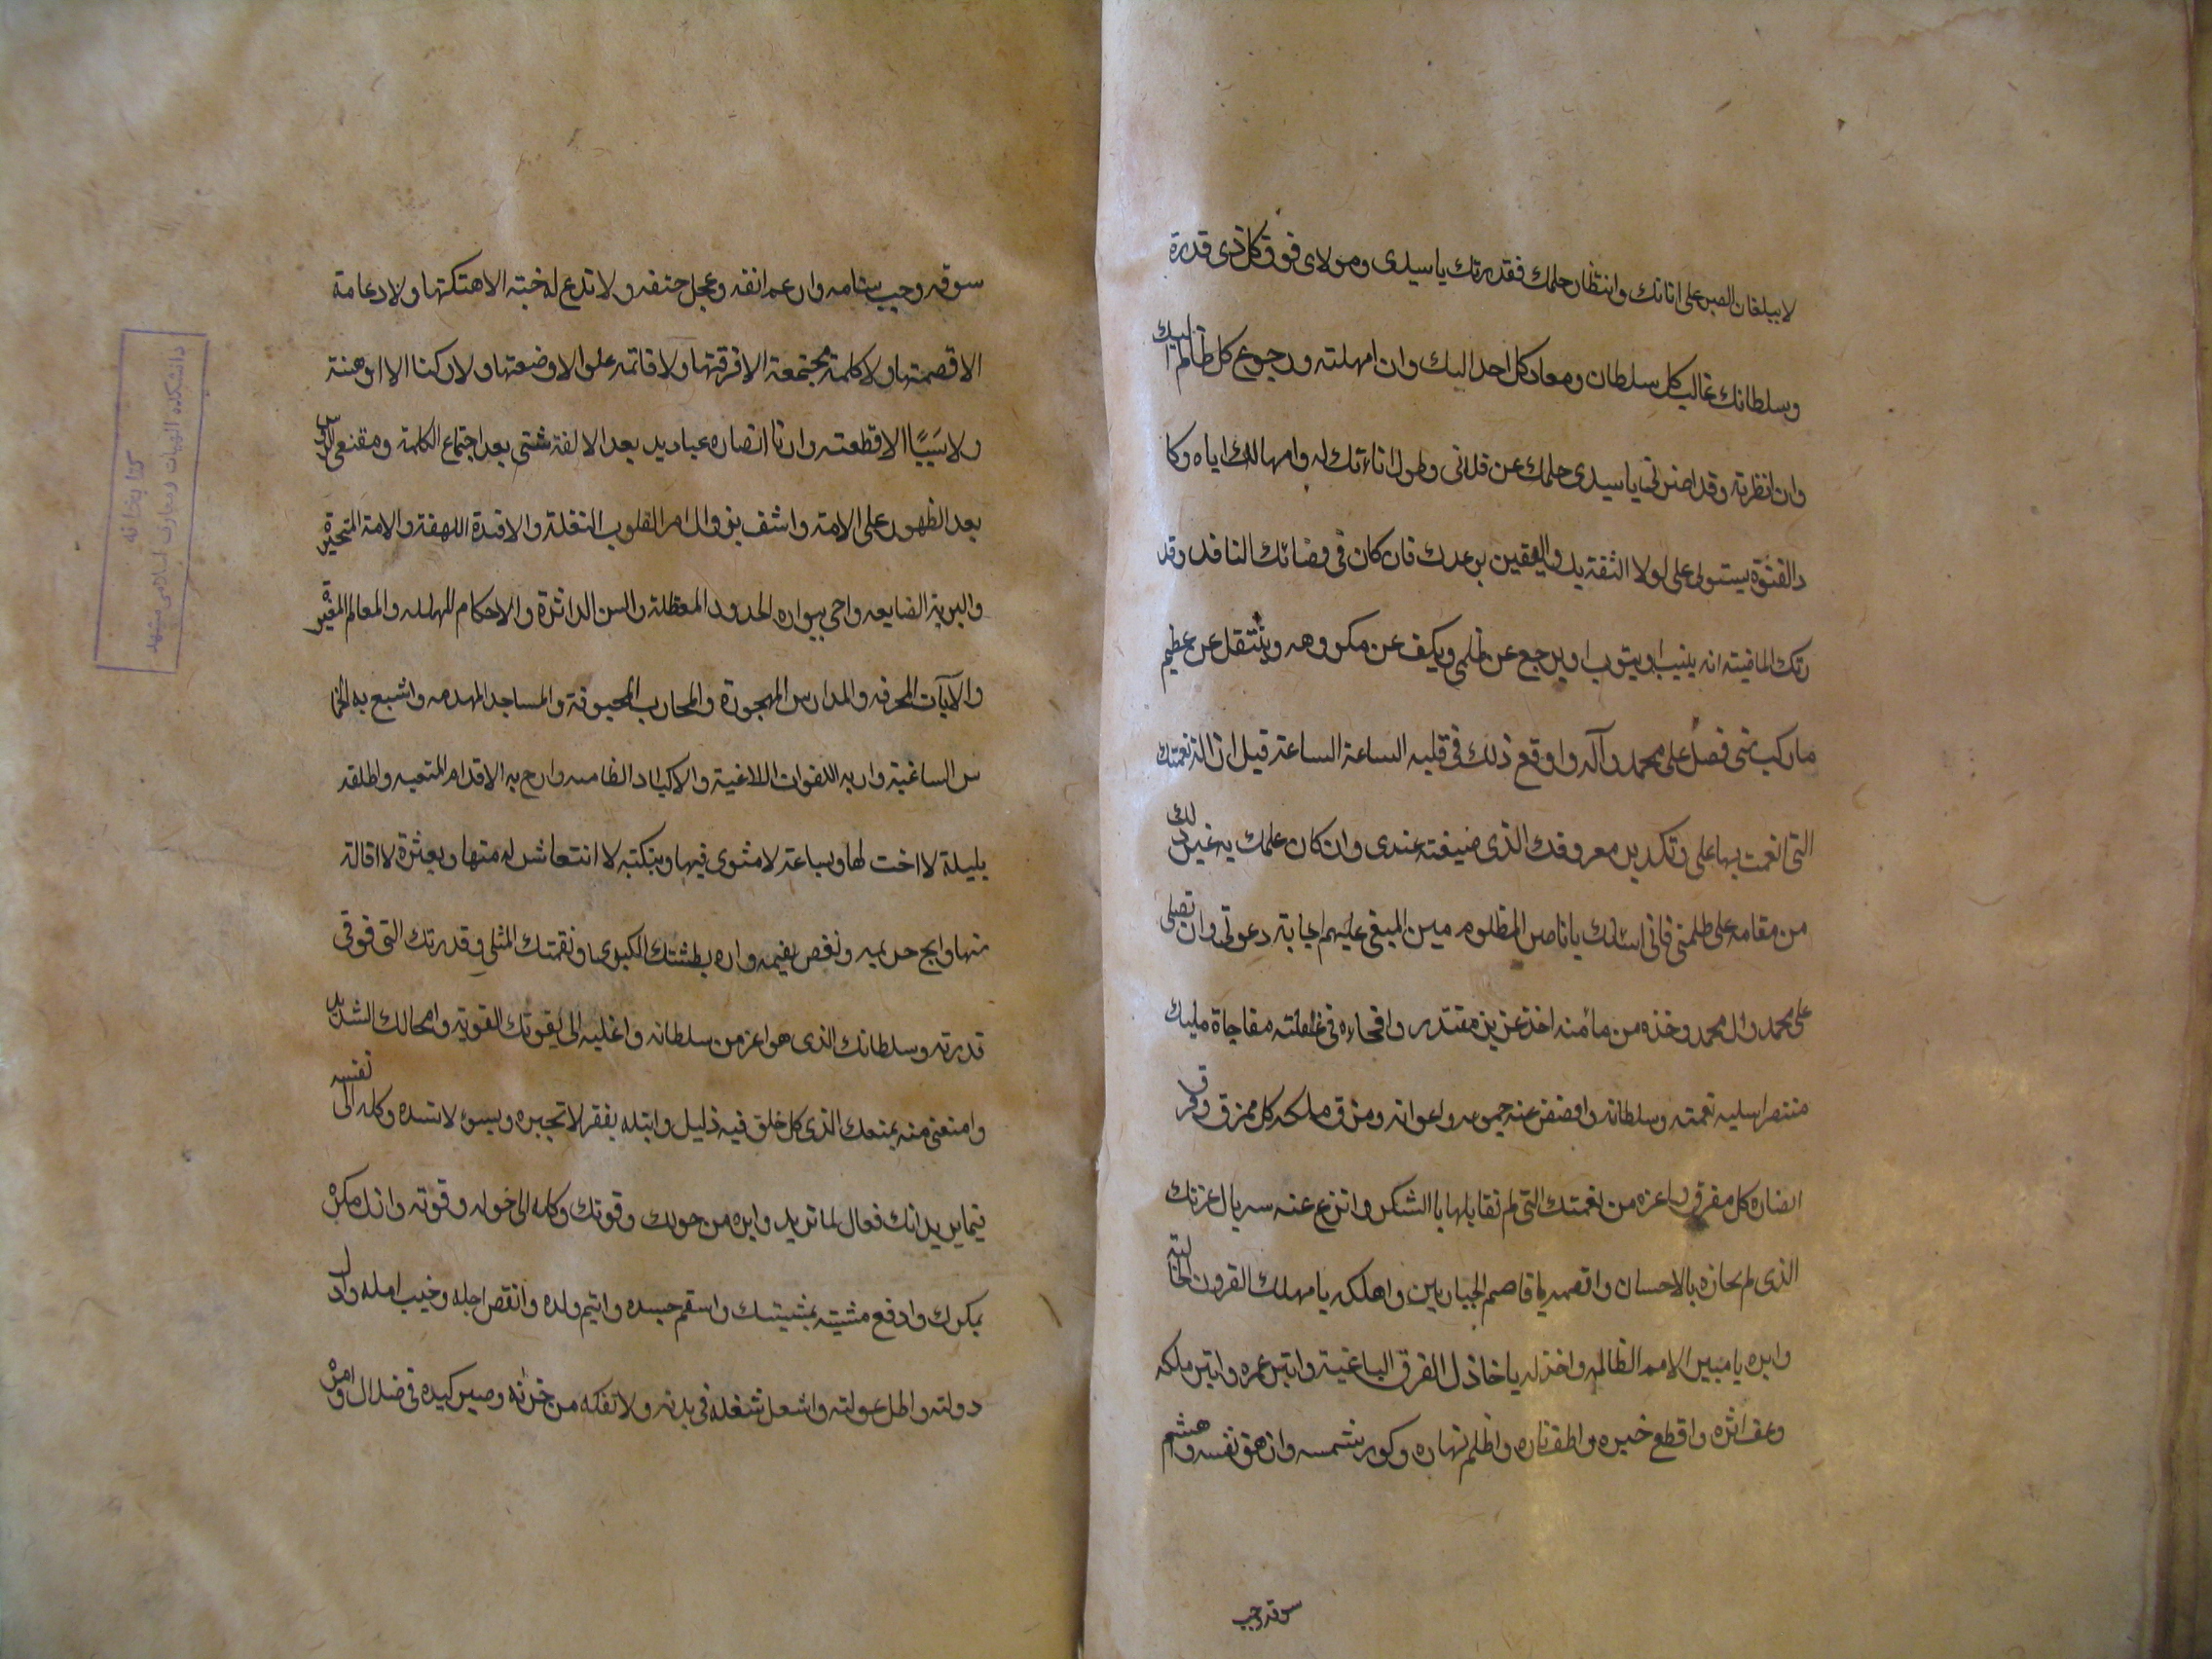 لا يبلغان الصبر على اناتك وانتظار حلمك فقدرتك يا سيدى ومولاى فوق كل ذى قدرة
وسلطانك غالب كل سلطان ومعاد كل احد اليك وان امهلته ورجوع كل ظالم اليك
وان انظرته وقد اضرنى يا سيدى حلمك عن فلانى وطول اناءتك له وامهالك اياه وكا
د القنوة يستولى على لولا الثقة بك واليقين بوعدك فان كان فى قضائك النافذ وقد
رتك الماضيته انه ينيب او يتوب او يرجع عن ظلمى ويكف عن مكروهه وينتقل عن عظيم
ما ركب منى فصل على محمد وآله واوقع ذلك فى قلبه الساعة الساعة قبل ازالة نعمتك
التى انعمت بها على وتكدير معروفك الذى ضيفته عندى وان كان علمك به غير ذلك
من مقامه على ظلمى فانى اسئلك يا ناصر المظلومين المبغى عليهم اجابة دعوتى وان تصلى
على محمد وال محمد وخذه من مأمنه اخذ عزيز مقتدر وافجاءه فى غفلته مفاجاة مليك
منتصر اسلبه نعمته وسلطانه وافضض عنه جموعه واعوانه ومزق ملكه كل ممزق وفرق
انصاره كل مفرق واعزه من نعمتك التى لم تقابلها با الشكر وانزع عنه سربال عزتك
الذى لم يجازه بالاحسان واقصمه يا قاصم الجبارين واهلكه يا مهلك القرون الخالية
وابره يا مبير الامم الظالمه واخذله يا خاذل الفرق الباغية وابتر عمره وابتر ملكه
وعف اثره واقطع خبره واطف ناره واظلم نهاره وكور شمسه وازهق نفسه وهشم
سوقه وجب
سوقه وجب سنامه وارغم انفه وعجل حتفه ولا تدع له خبته الا هتكتها ولا دعامة
الا قصمتها ولا كلمة مجتمعة الا فرقتها ولا قائمة علو الا وضعتها ولا ركنا الا اوهنته
ولا سَبَبًا الا قطعته وارنا انصاره عباديد بعد الالفة شتى بعد اجتماع الكلمة ومقنعى الرؤس
بعد الظهور على الامة واشف بزوال امره القلوب النغلة والافئدة اللهفة والامة المتحيرة
والبرية الضايعه واحى ببواره الحدود المعطلة والسن الداثرة والاحكام المهمله والمعالم المغيرة
والآيات المحرفه والمدارس المهجورة والمحاريب المجفوفة والمساجد المهدمه واشبع به الخما
ص الساغبة واربه اللهوات اللاغبة والاكباد الظامئه وارح به الاقدام المتعبه واطلقه
بليلة لا اخت لها وبساعة لا مثوى فيها وبنكتبه لا انتعاش له منها وبعثرة لا اقالة
منها وابح حريمه ونغص نعيمه واره بطشتك الكبرى ونقمتك المثلى وقدرتك التى فوق
قدرته وسلطانك الذى هو اعز من سلطانه واغلبه لى بقوتك القويه ومحالك الشديد
وامنعنى منه بمنعك الذى كل خلق فيه ذليل وابتله بفقر لا تجبره وبسوء لا تستره وكله الى نفسه
فيما يريد انك فعال لما تريد وابره من حولك وقوتك وكله الى حوله وقوته وازل مكره
بمكرك وادفع مشيته بمشيتك واسقم جسده وايتم ولده وانقص اجله وخيب امله وادل
دولته واطل عولته واشعل شغله فى بدنه ولا تفكه من حزنه وصير كيده فى ضلال وامره
كتابخانه
دانشكده الهيات ومعارف اسلامى مشهد